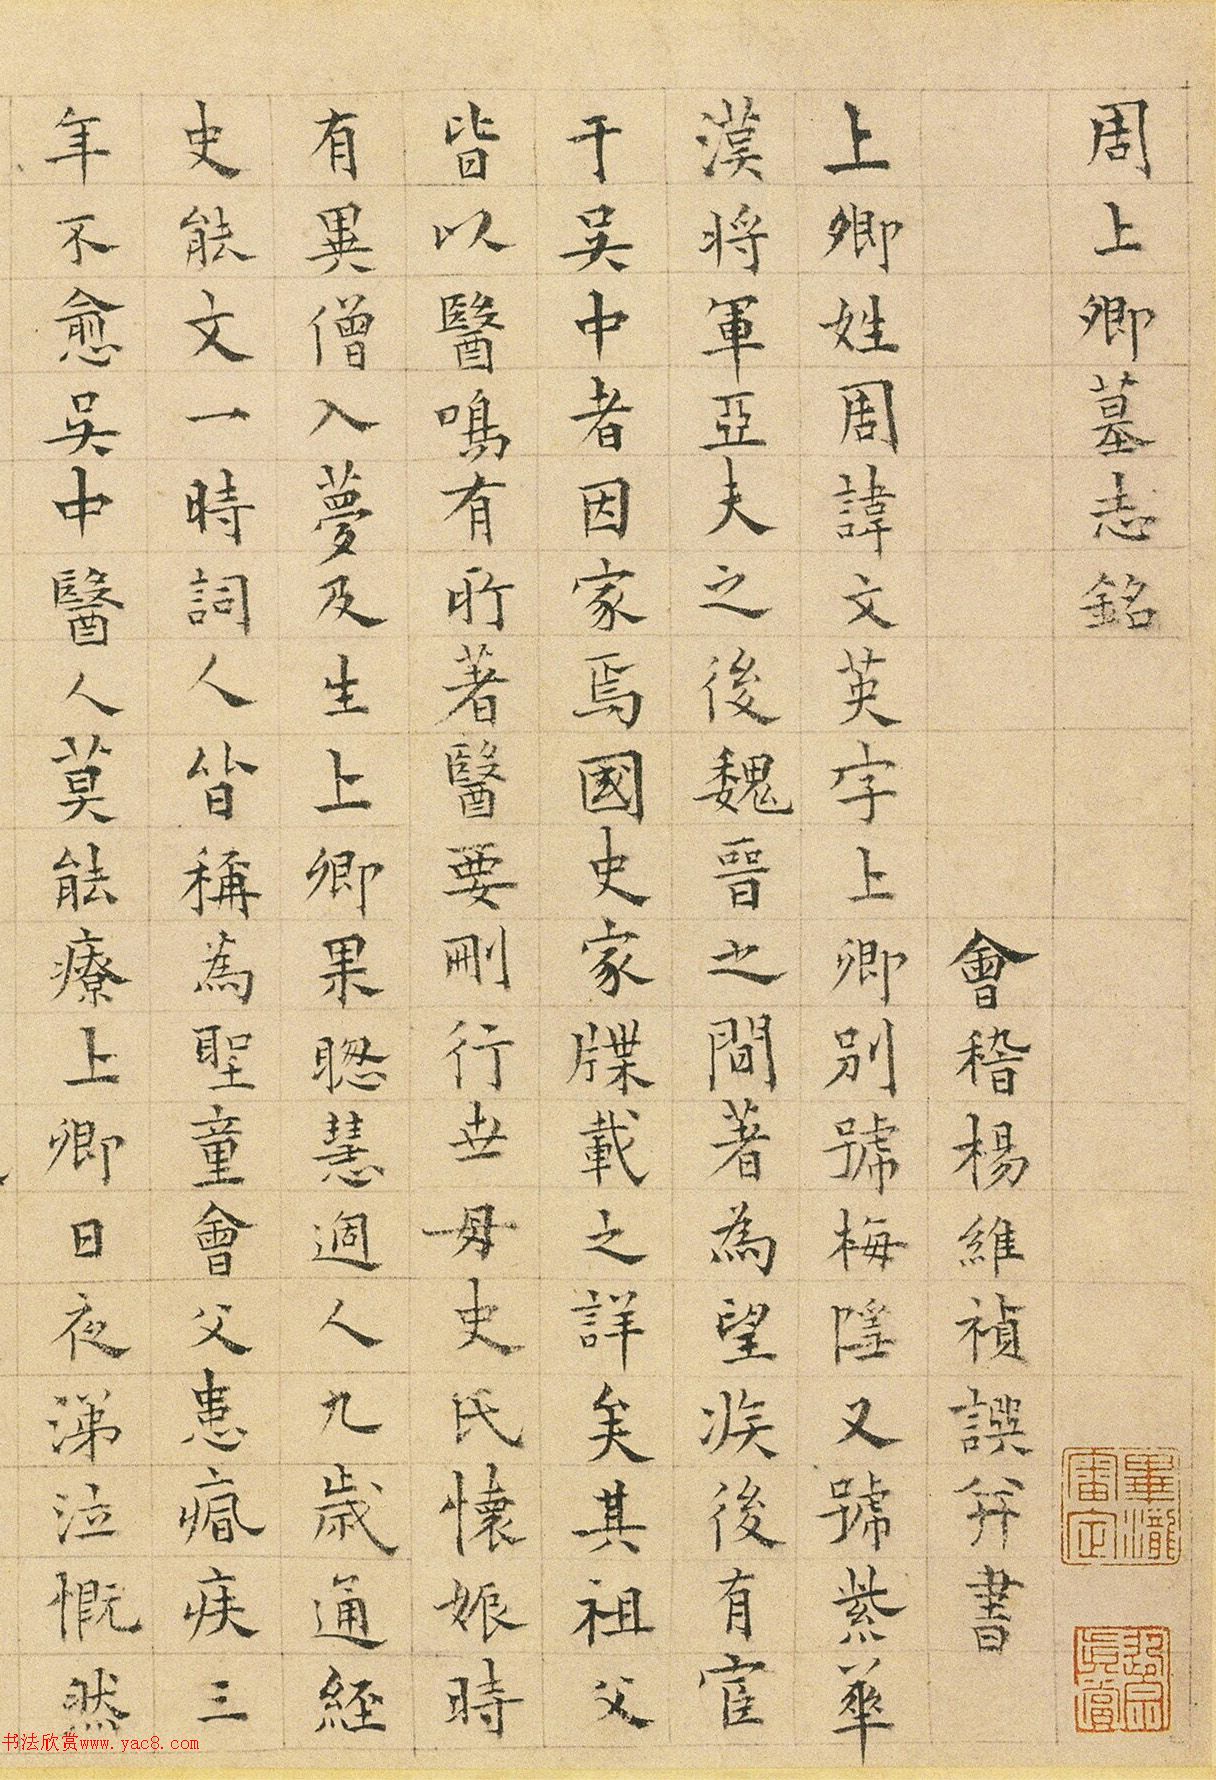 周上卿墓志銘
會稽楊維禎譔并書
上卿姓周諱文英字上卿別號梅隱又號紫華
漢將軍亞夫之後魏晉之間著為望族後有宦
于吳中者因家焉國史家牒載之詳矣其祖父
皆以醫鳴有所著醫要刪行世母史氏懷娠時
有異僧入夢及生上卿果聰慧過人九歲通經
史能文一時詞人皆稱為聖童會父患瘕疾三
年不愈吳中醫人莫能療上卿日夜涕泣慨然
畢瀧審定
书法欣赏www.yac8.com